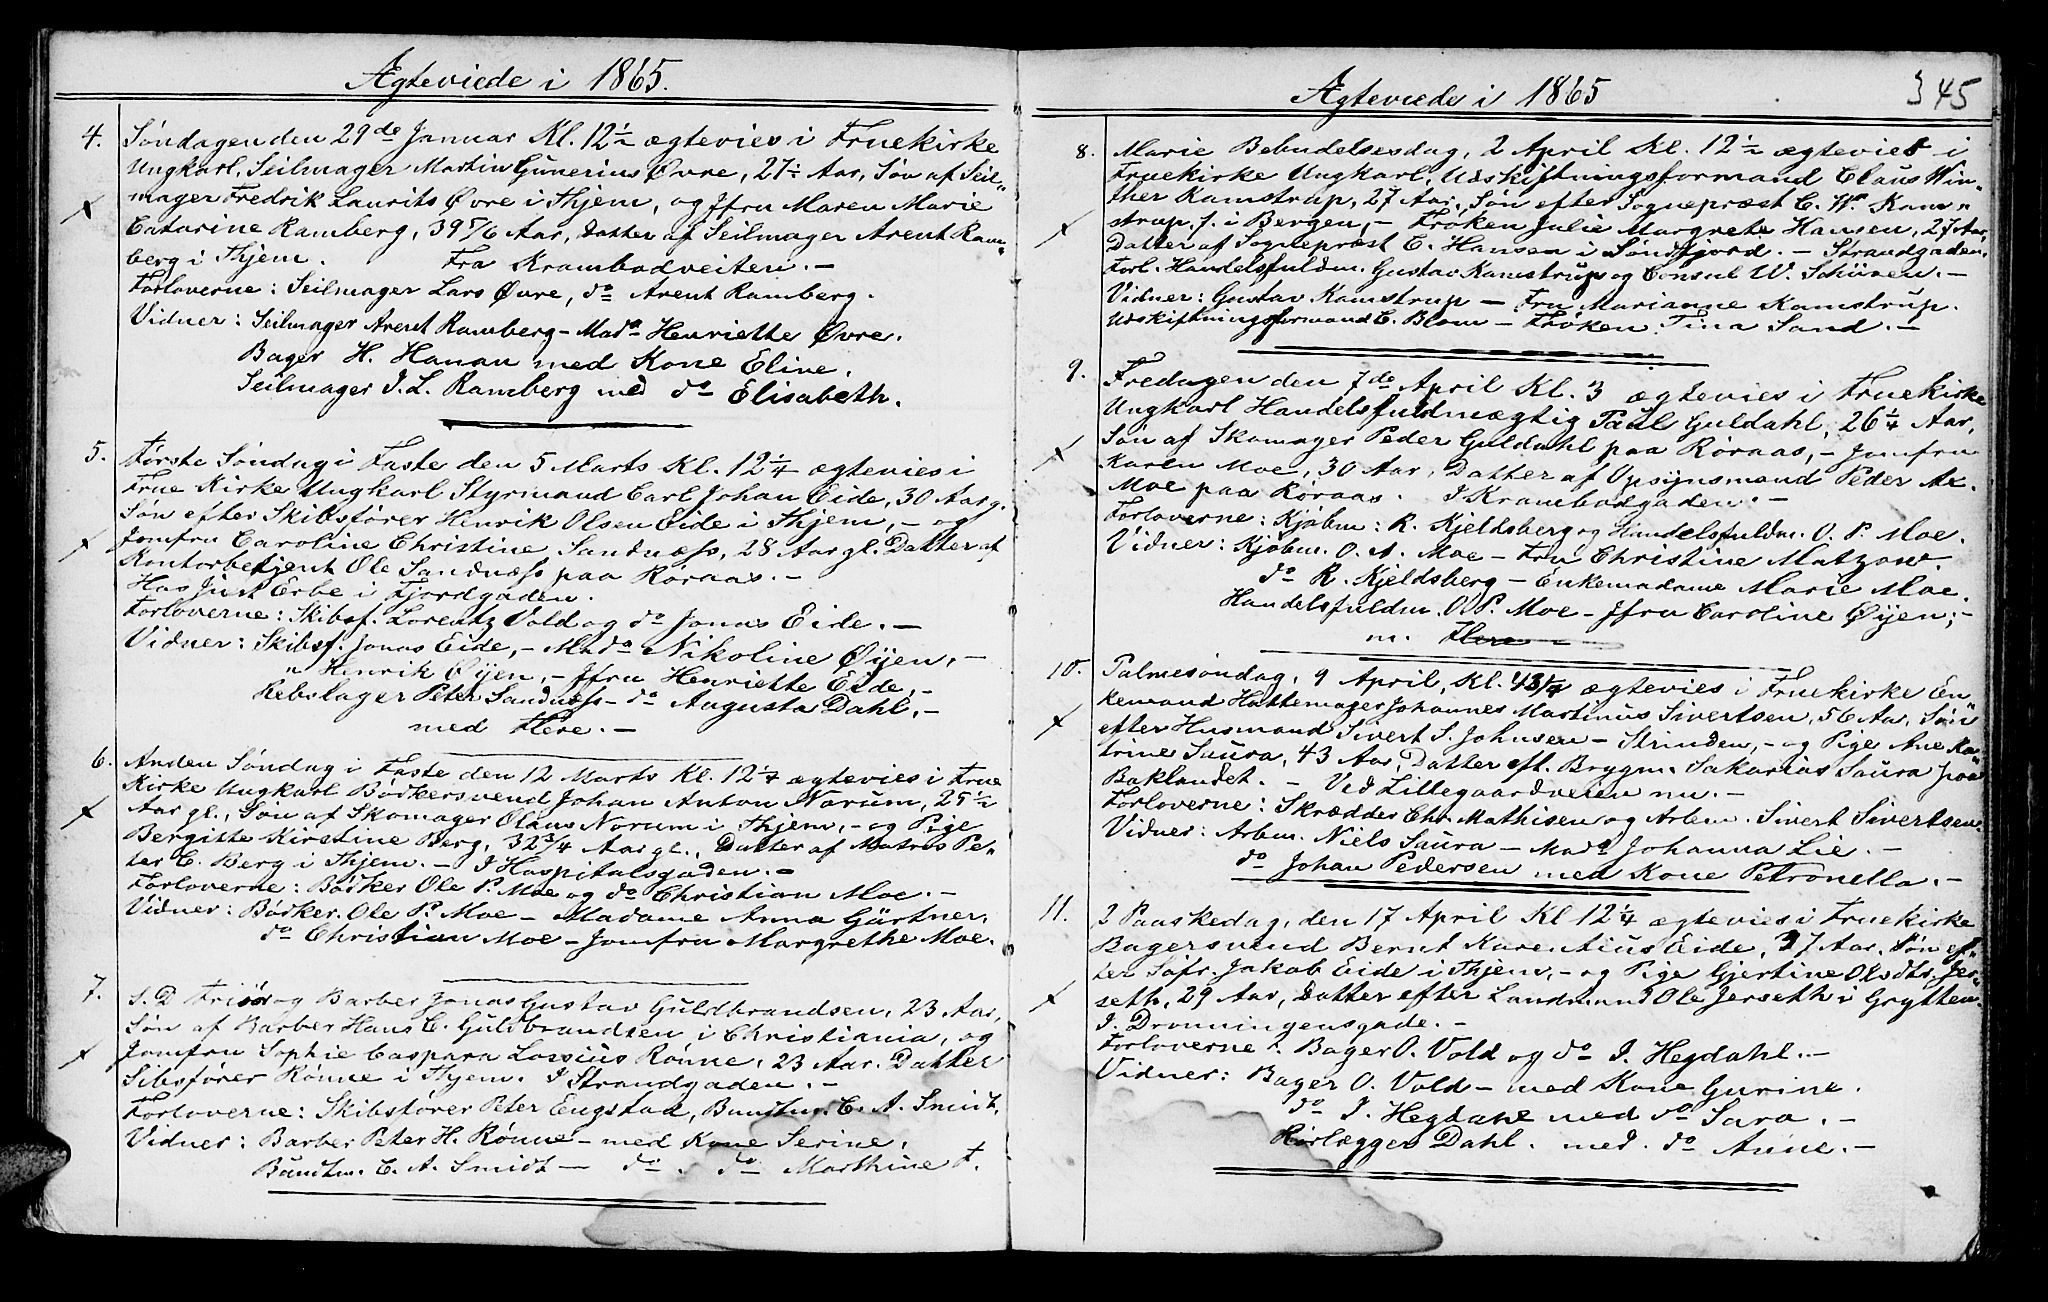 Ægteviede i 1865.
4. Søndagen den 29de Januar Kl. 12½ ægtevies i Fruekirke
Ungkarl, Seilmager Martin Gunerius Øvre, 27½ Aar, Søn af Seil„
mager Fredrik Laurits Øvre i Thjem, og Jfru Maren Marie
Catarine Ramberg, 39 5/6 Aar, Datter af Seilmager Arent Ram„
berg i Thjem. Fra Krambodveiten.—
Forloverne: Seilmager Lars Øvre, do Arent Ramberg.
Vidner: Seilmager Arent Ramberg – Mado Henriette Øvre.
Bager H. Hanan med Kone Eline.
Seilmager J. L. Ramberg med do Elisabeth.
5. Første Søndag i Faste den 5 Marts Kl. 12¼ ægtevies i
Frue Kirke Ungkarl Styrmand Carl Johan Eide, 30 Aar g.
Søn efter Skibsfører Henrik Olsen Eide i Thjem, – og
Jomfru Caroline Christine Sandnæss, 28 Aar gl. Datter af
Kontorbetjent Ole Sandnæss paa Røraas.—
Hos Just Erbe i Fjordgaden.
Forloverne: Skibsf. Lorentz Vold og do Jonas Eide.—
Vidner: Skibsf. Jonas Eide, – Mado Nikoline Øyen, –
„ Henrik Øyen, – Jfru Henriette Eide, –
Rebslager Peter Sandnæss – do Augusta Dahl. –
med Flere. –
6. Anden Søndag i Faste den 12 Marts Kl. 12¼ ægtevies i Frue
Kirke Ungkarl Bødkersvend Johan Anton Norum, 25½
Aar gl., Søn af Skomager Olaus Norum i Thjem, – og Pige
Bergitte Kirstine Berg, 32¾ Aar gl., Datter af Matros Pe„
ter C. Berg i Thjem. – I Hospitalsgaden. –
Forloverne: Bødker Ole P. Moe og do Christian Moe. –
Vidner: Bødker. Ole P. Moe – Madame Anna Gärtner,
do Christian Moe – Jomfru Margrethe Moe.
7. S. D Frisør og Barber Jonas Gustav Guldbrandsen, 23 Aar,
Søn af Barber Hans C. Guldbrandsen, i Christiania, og
Jomfru Sophie Caspara Lossius Rønne, 23 Aar. Datter
Sibsfører Rønne i Thjem. I Strandgaden. –
Forloverne: Skibsfører Peter Engstad, Bundtm. C. A. Smidt,
Vidner: Barber Peter H. Rønne – med Kone Serine,
Bundtm. C. A. Smidt – do. do Marthine F.
Ægteviede i 1865 345
8. Marie Bebudelsesdag, 2 April Kl. 12½ ægtevies i
Fruekirke Ungkarl, Udskiftningsformand Claus Win„
ther Kamstrup, 27 Aar, Søn efter Sognepræst C. W. Kam„
strup f. i Bergen, – Frøken Julie Margrete Hansen, 27 Aar,
Datter af Sognepræst C. Hansen i Søndfjord. – Strandgaden.
Forl. Handelsfuldm. Gustav Kamstrup og Consul W. Schüren. –
Vidner: Gustav Kamstrup – Fru Marianne Kamstrup.
Udskiftningsformand C. Blom – Frøken Tina Sand. –
9. Fredagen den 7de April Kl. 3 ægtevies i Fruekirke
Ungkarl Handelsfuldmægtig Paul Guldahl, 26¼ Aar,
Søn af Skomager Peder Guldahl paa Røraas, – Jomfru
Karen Moe, 30 Aar, Datter af Opsynsmand Peder Ax.
Moe paa Røraas. I Krambodgaden. –
Forloverne: Kjøbm: R. Kjeldsberg og Handelsfuldm. O. P. Moe.
Vidner: Kjøbm. O. A. Moe – Fru Christine Matzow.
do R. Kjeldsberg – Enkemadame Marie Moe.
Handelsfuldm. O. P. Moe – Jfru Caroline Øyen; –
m. Flere –
10. Palmesøndag, 9 April, Kl. 4 3/4 ægtevies i Fruekirke En„
kemand Hattemager Johannes Martinus Sivertsen, 56 Aar, Søn
efter Husmand Sivert S. Johnsen – Strinden, – og Pige Ane Ka„
trine Saura, 43 Aar, Datter eft. Brygm. Sakarias Saura paa
Baklandet. – Ved Lillegaardveien nu. –
Forloverne: Skrædder Chr. Mathisen og Arbm. Sivert Sivertsen.
Vidner: Arbm. Niels Saura – Mado Johanna Lie. –
do Johan Pedersen med Kone Petronella. –
11. 2 Paaskedag, den 17 April Kl 12¼ ægtevies i Fruekirke
Bagersvend Bernt Karenius Eide, 37 Aar, Søn ef„
ter Søfr. Jakob Eide i Thjem, – og Pige Gjertine Olsdtr. Jer„
seth, 29 Aar, Datter efter Landmand Ole Jerseth i Grytten.
I. Dronningensgade. –
Forloverne: Bager O. Vold og do J. Hegdahl. –
Vidner: Bager O. Vold – med Kone Gurine.
do J. Hegdahl med do Sara. –
Rørlægger Dahl. med. do Anne. –